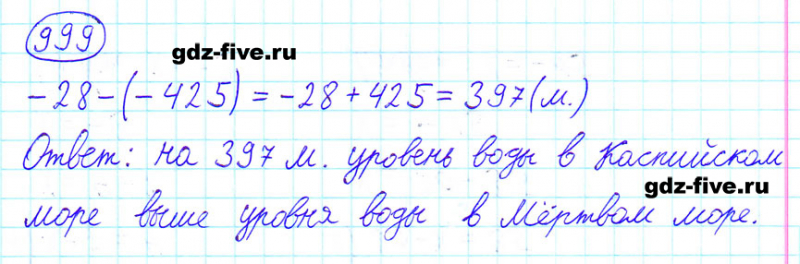 999
gdz-five.ru
-28-(-425)=-28+425=397(м.)
Ответ: на 397 м. уровень воды в Каспийском
gdz-five.ru
море выше уровня воды в Мёртвом море.